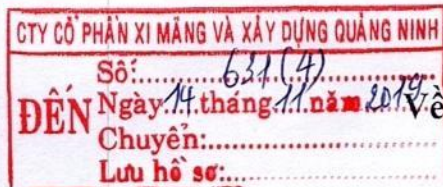 CTY CỔ PHẦN XI MĂNG VÀ XÂY DỰNG QUẢNG NINH
Số:.......631(4)...........
ĐẾN Ngày.14.tháng.11.năm.2019 Về
Chuyển:...................
Lưu hồ sơ:................